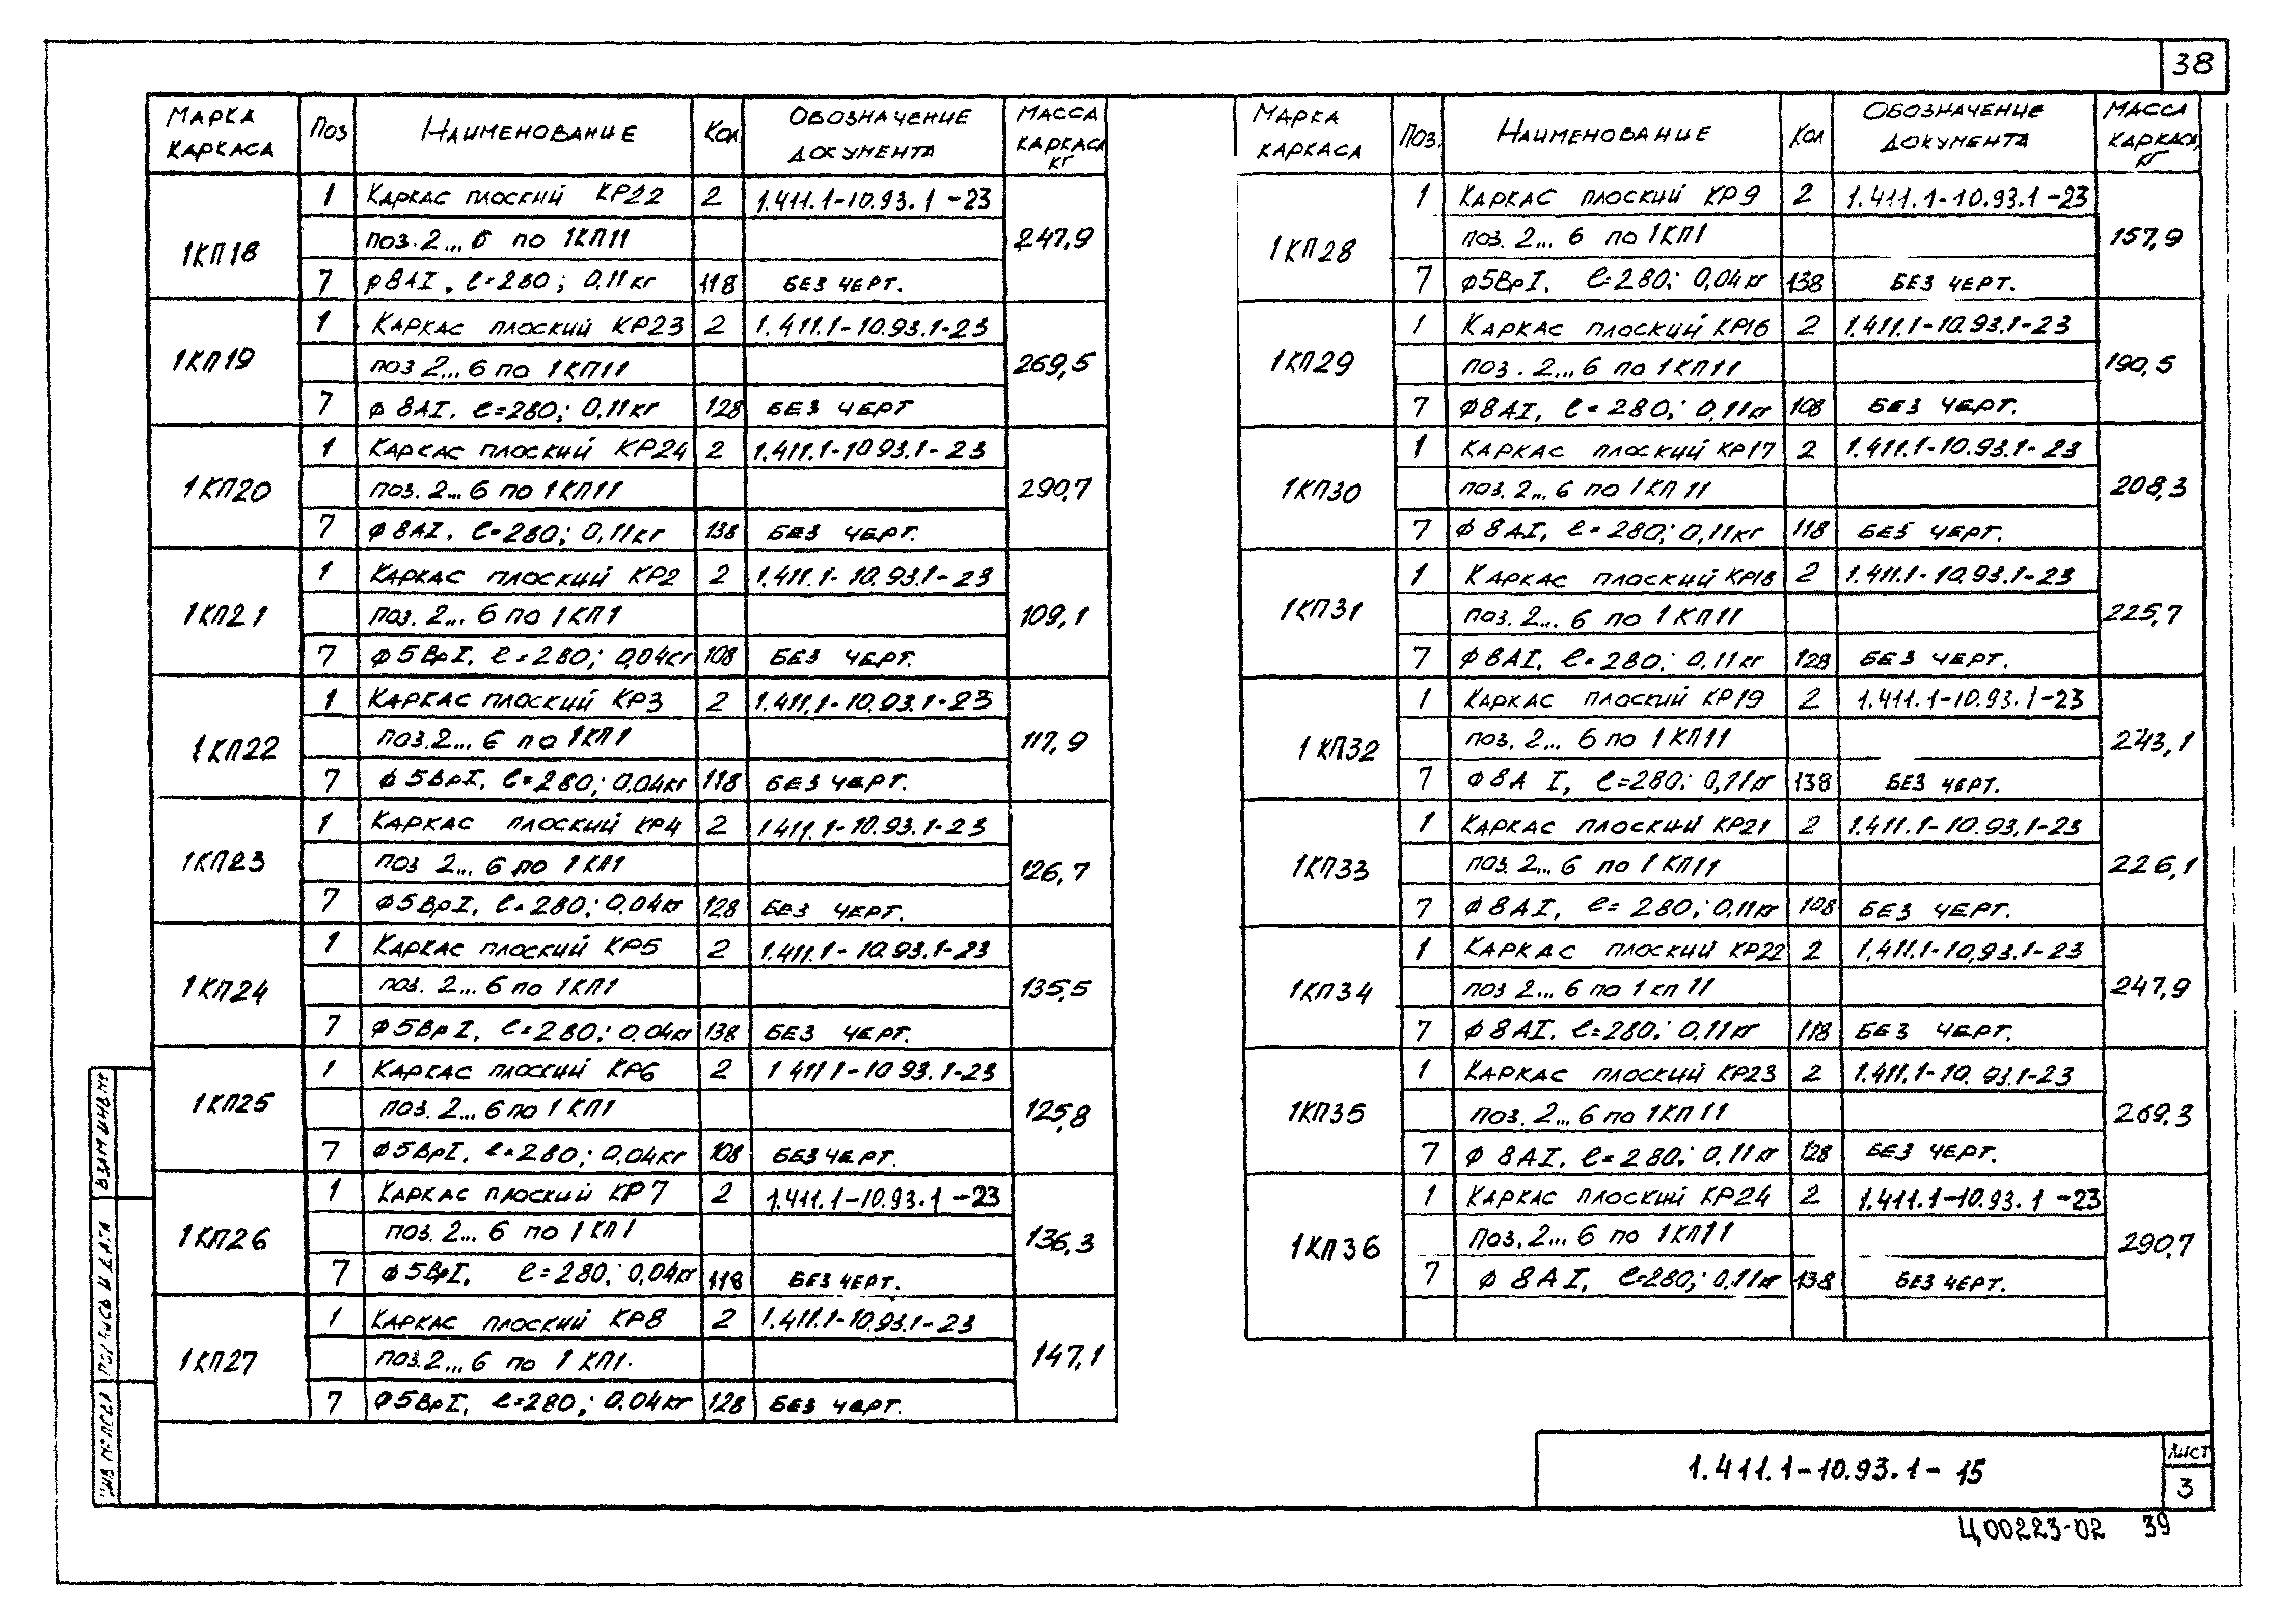 38
Марка каркаса Поз Наименование Кол Обозначение документа Масса каркаса кг
1КП18 247,9
1 Каркас плоский КР22 2 1.411.1-10.93.1-23
поз. 2... 6 по 1КП11
7 ⌀8АI, ℓ=280; 0,11кг 118 без черт.
1КП19 269,5
1 Каркас плоский КР23 2 1.411.1-10.93.1-23
поз 2... 6 по 1КП11
7 ⌀8АI. ℓ=280; 0,11кг 128 без черт
1КП20 290,7
1 Каркас плоский КР24 2 1.411.1-10 93.1-23
поз. 2... 6 по 1КП11
7 ⌀8АI. ℓ=280; 0,11кг 138 без черт.
1КП21 109,1
1 Каркас плоский КР2 2 1.411.1-10.93.1-23
поз. 2... 6 по 1КП1
7 ⌀5ВрI, ℓ=280; 0,04кг 108 без черт.
1КП22 117,9
1 Каркас плоский КР3 2 1.411.1-10.93.1-23
поз. 2... 6 по 1КП1
7 ⌀5ВрI, ℓ=280; 0,04кг 118 без черт.
1КП23 126,7
1 Каркас плоский КР4 2 1 411.1-10.93.1-23
поз 2... 6 по 1КП1
7 ⌀5ВрI, ℓ=280; 0,04кг 128 без черт.
1КП24 135,5
1 Каркас плоский КР5 2 1.411.1-10.93.1-23
поз. 2... 6 по 1КП1
7 ⌀5ВрI, ℓ=280; 0,04кг 138 без черт.
1КП25 125,8
1 Каркас плоский КР6 2 1 411 1-10 93.1-23
поз. 2... 6 по 1КП1
7 ⌀5ВрI, ℓ=280; 0,04кг 108 без черт.
1КП26 136,3
1 Каркас плоский КР7 2 1.411.1-10.93.1-23
поз. 2... 6 по 1КП1
7 ⌀5ВрI, ℓ=280; 0,04кг 118 без черт.
1КП27 147,1
1 Каркас плоский КР8 2 1.411.1-10.93.1-23
поз. 2... 6 по 1КП1.
7 ⌀5ВрI, ℓ=280; 0,04кг 128 без черт.
Марка каркаса Поз. Наименование Кол Обозначение документа Масса каркаса, кг
1КП28 157,9
1 Каркас плоский КР9 2 1.411.1-10.93.1-23
поз. 2... 6 по 1КП1
7 ⌀5ВрI, ℓ=280; 0,04кг 138 без черт.
1КП29 190,5
1 Каркас плоский КР16 2 1.411.1-10.93.1-23
поз. 2... 6 по 1КП11
7 ⌀8АI, ℓ=280; 0,11кг 108 без черт.
1КП30 208,3
1 Каркас плоский КР17 2 1.411.1-10.93.1-23
поз. 2... 6 по 1КП11
7 ⌀8АI, ℓ=280; 0,11кг 118 без черт.
1КП31 225,7
1 Каркас плоский КР18 2 1.411.1-10.93.1-23
поз. 2... 6 по 1КП11
7 ⌀8АI, ℓ=280; 0,11кг 128 без черт.
1КП32 243,1
1 Каркас плоский КР19 2 1.411.1-10.93.1-23
поз. 2... 6 по 1КП11
7 ⌀8АI, ℓ=280; 0,11кг 138 без черт.
1КП33 226,1
1 Каркас плоский КР21 2 1.411.1-10.93.1-23
поз. 2... 6 по 1КП11
7 ⌀8АI, ℓ=280; 0,11кг 108 без черт.
1КП34 247,9
1 Каркас плоский КР22 2 1.411.1-10,93.1-23
поз 2... 6 по 1кп11
7 ⌀8АI, ℓ=280; 0,11кг 118 без черт.
1КП35 269,3
1 Каркас плоский КР23 2 1.411.1-10.93.1-23
поз. 2... 6 по 1КП11
7 ⌀8АI, ℓ=280; 0,11кг 128 без черт.
1КП36 290,7
1 Каркас плоский КР24 2 1.411.1-10.93.1-23
поз. 2... 6 по 1КП11
7 ⌀8АI, ℓ=280; 0,11кг 138 без черт.
Взам инв №
Подпись и дата
Инв № подл
1.411.1-10.93.1-15
Лист
3
Ц00223-02 39